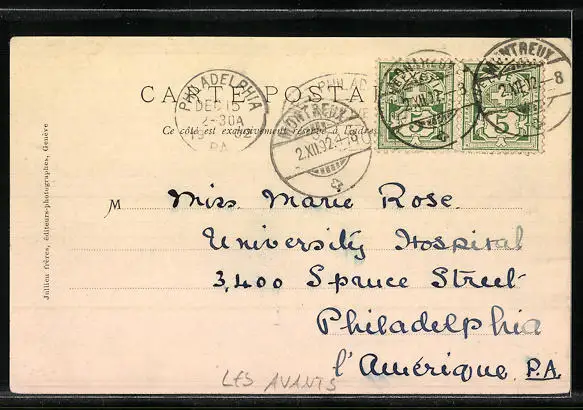 CARTE POSTALE
Ce côté est exclusivement réservé à l'adresse
PHILADELPHIA
DEC 15
2-30A
PA
MONTREUX
2.XII.02.-8
MONTREUX
2.XII.02.-8
MONTREUX
2.XII.02.-8
5
5
M Miss Marie Rose.
University Hospital
3,400 Spruce Street
Philadelphia
l'Amérique P.A.
LES AVANTS
Jullien frères, éditeurs-photographes, Genève